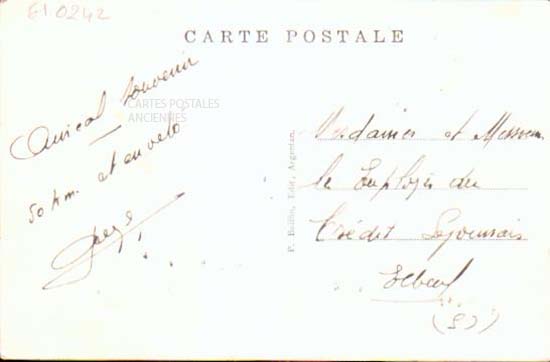 61 0242
CARTE POSTALE
Amical souvenir
CARTES POSTALES
ANCIENNES
50 km. et en vélo
P. Bullin, Edit., Argentan.
Mesdames et Messieurs
les Employés du
Crédit Lyonnais
Elbeuf
(S I)